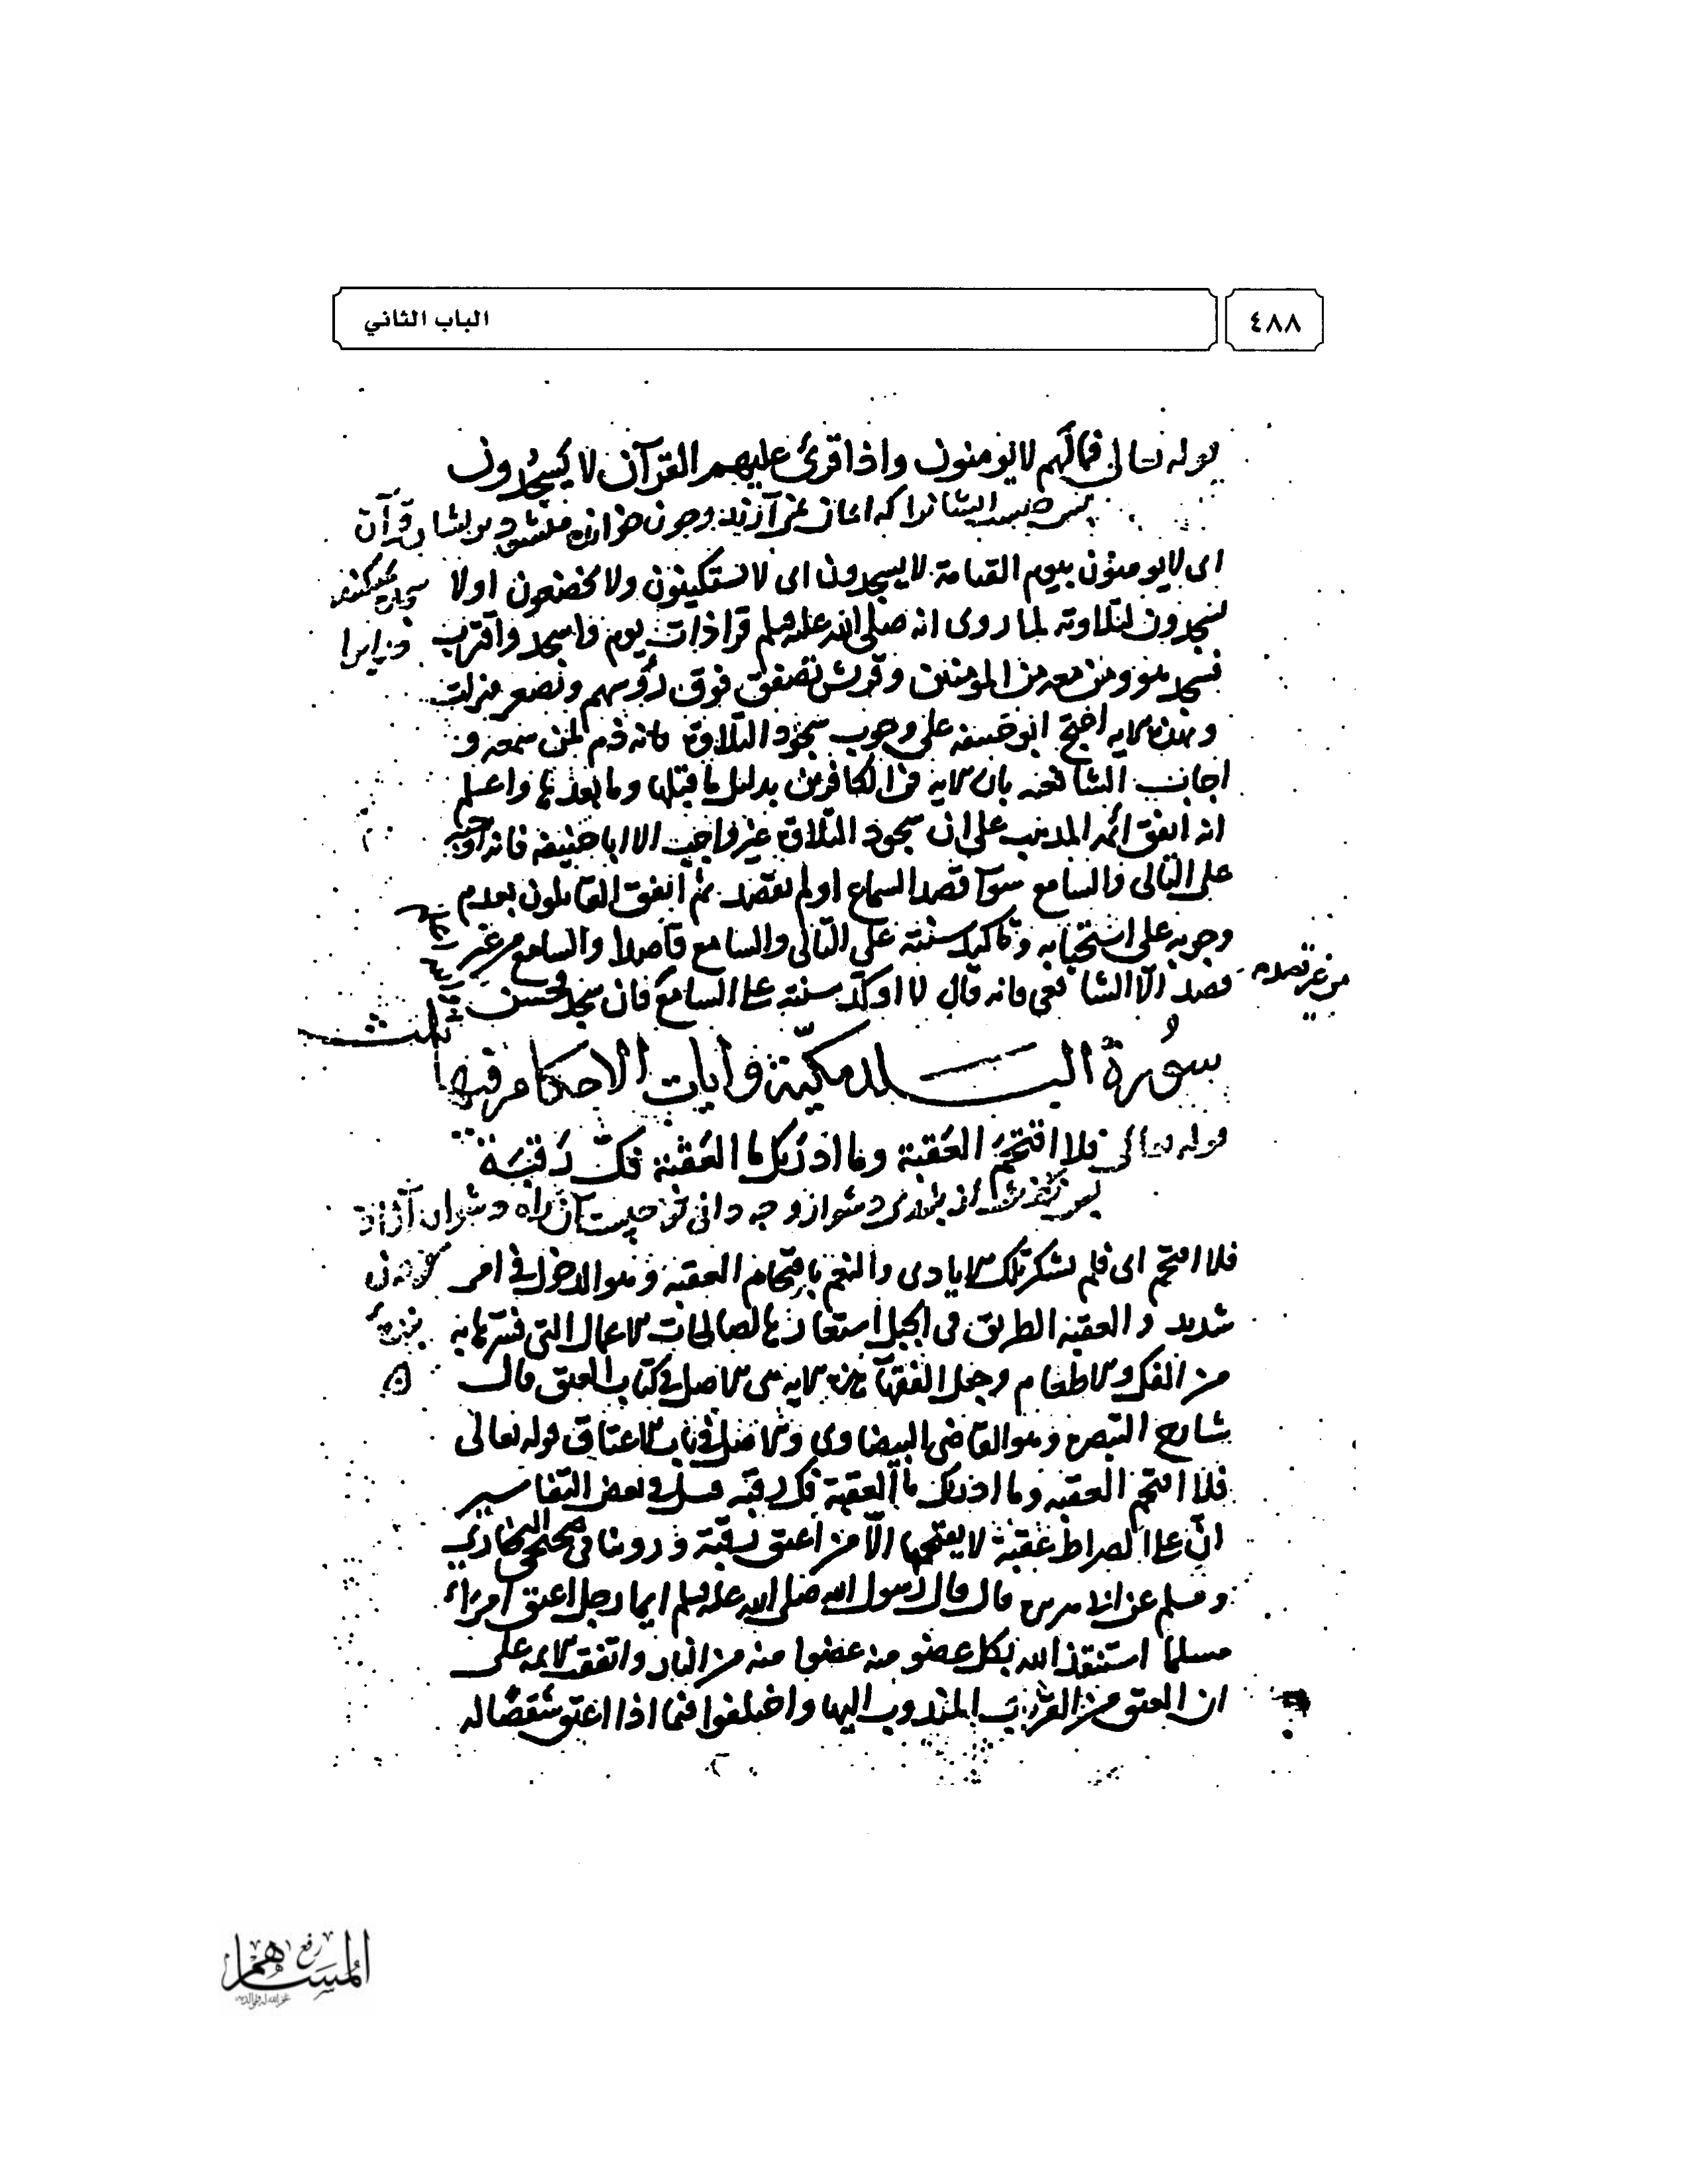 ٤٨٨
الباب الثاني
قوله تعالى فمالهم لا يومنون واذا قرئ عليهم القرآن لا يسجدون
اى لا يومنون بيوم القيامة لا يسجدون اى لا يستكينون ولا يخضعون اولا
يسجدون لتلاوته لما روى انه صلى الله عليه وسلم قرا ذات يوم واسجد واقترب
فسجد هو ومن معه من المومنين وقريش تصفق فوق رؤسهم وتصفر فنزلت
وبهذه الايه احتج ابو حنيفه على وجوب سجود التلاوة فانه ذم لمن سمعه و
اجاب الشافعيه بان الايه فى الكافرين بدليل ما قبلها وما بعدها واعلم
انه اتفق ائمه المذهب على ان سجود التلاوة غير واجب الا ابا حنيفه فانه اوجبه
على التالى والسامع سوآ قصد السماع اولم يقصد ثم اتفق القايلون بعدم
وجوبه على استحبابه وتاكيد سنته على التالى والسامع قاصدا والسامع من غير
قصد الا الشافعى فانه قال لا اوكد سنته على السامع فان سجد فحسن
من غير قصده
سورة البلد مكية وايات الاحكام فيها
ثلث
قوله تعالى فلا اقتحم العقبة وما ادريك ما العقبة فك رقبة
فلا اقتحم اى فلم يشكر تلك الايادى والنعم باقتحام العقبة وهو الدخول فى امر
شديد والعقبه الطريق فى الجبل استعارها لصالحات الاعمال التى فسرها به
من الفك والاطعام وجعل الفقهآ هذه الايه هى الاصل فى كتاب العتق قال
شارح التبصره وهو القاضى البيضاوى والاصل فى باب الاعتاق قوله تعالى
فلا اقتحم العقبه وما ادريك ما العقبة فك رقبه قيل فى بعض التفاسير
ان على الصراط عقبة لا يقتحمها الا من اعتق رقبة وروينا فى صحيحى البخارى
ومسلم عن ابى هريره قال قال رسول الله صلى الله عليه وسلم ايما رجل اعتق امراء
مسلما استنقذ الله بكل عضو منه عضوا منه من النار واتفقت الايمه على
ان العتق من القربات المندوب اليها واختلفوا فيما اذا اعتق شقصا له
المساهم
رفع